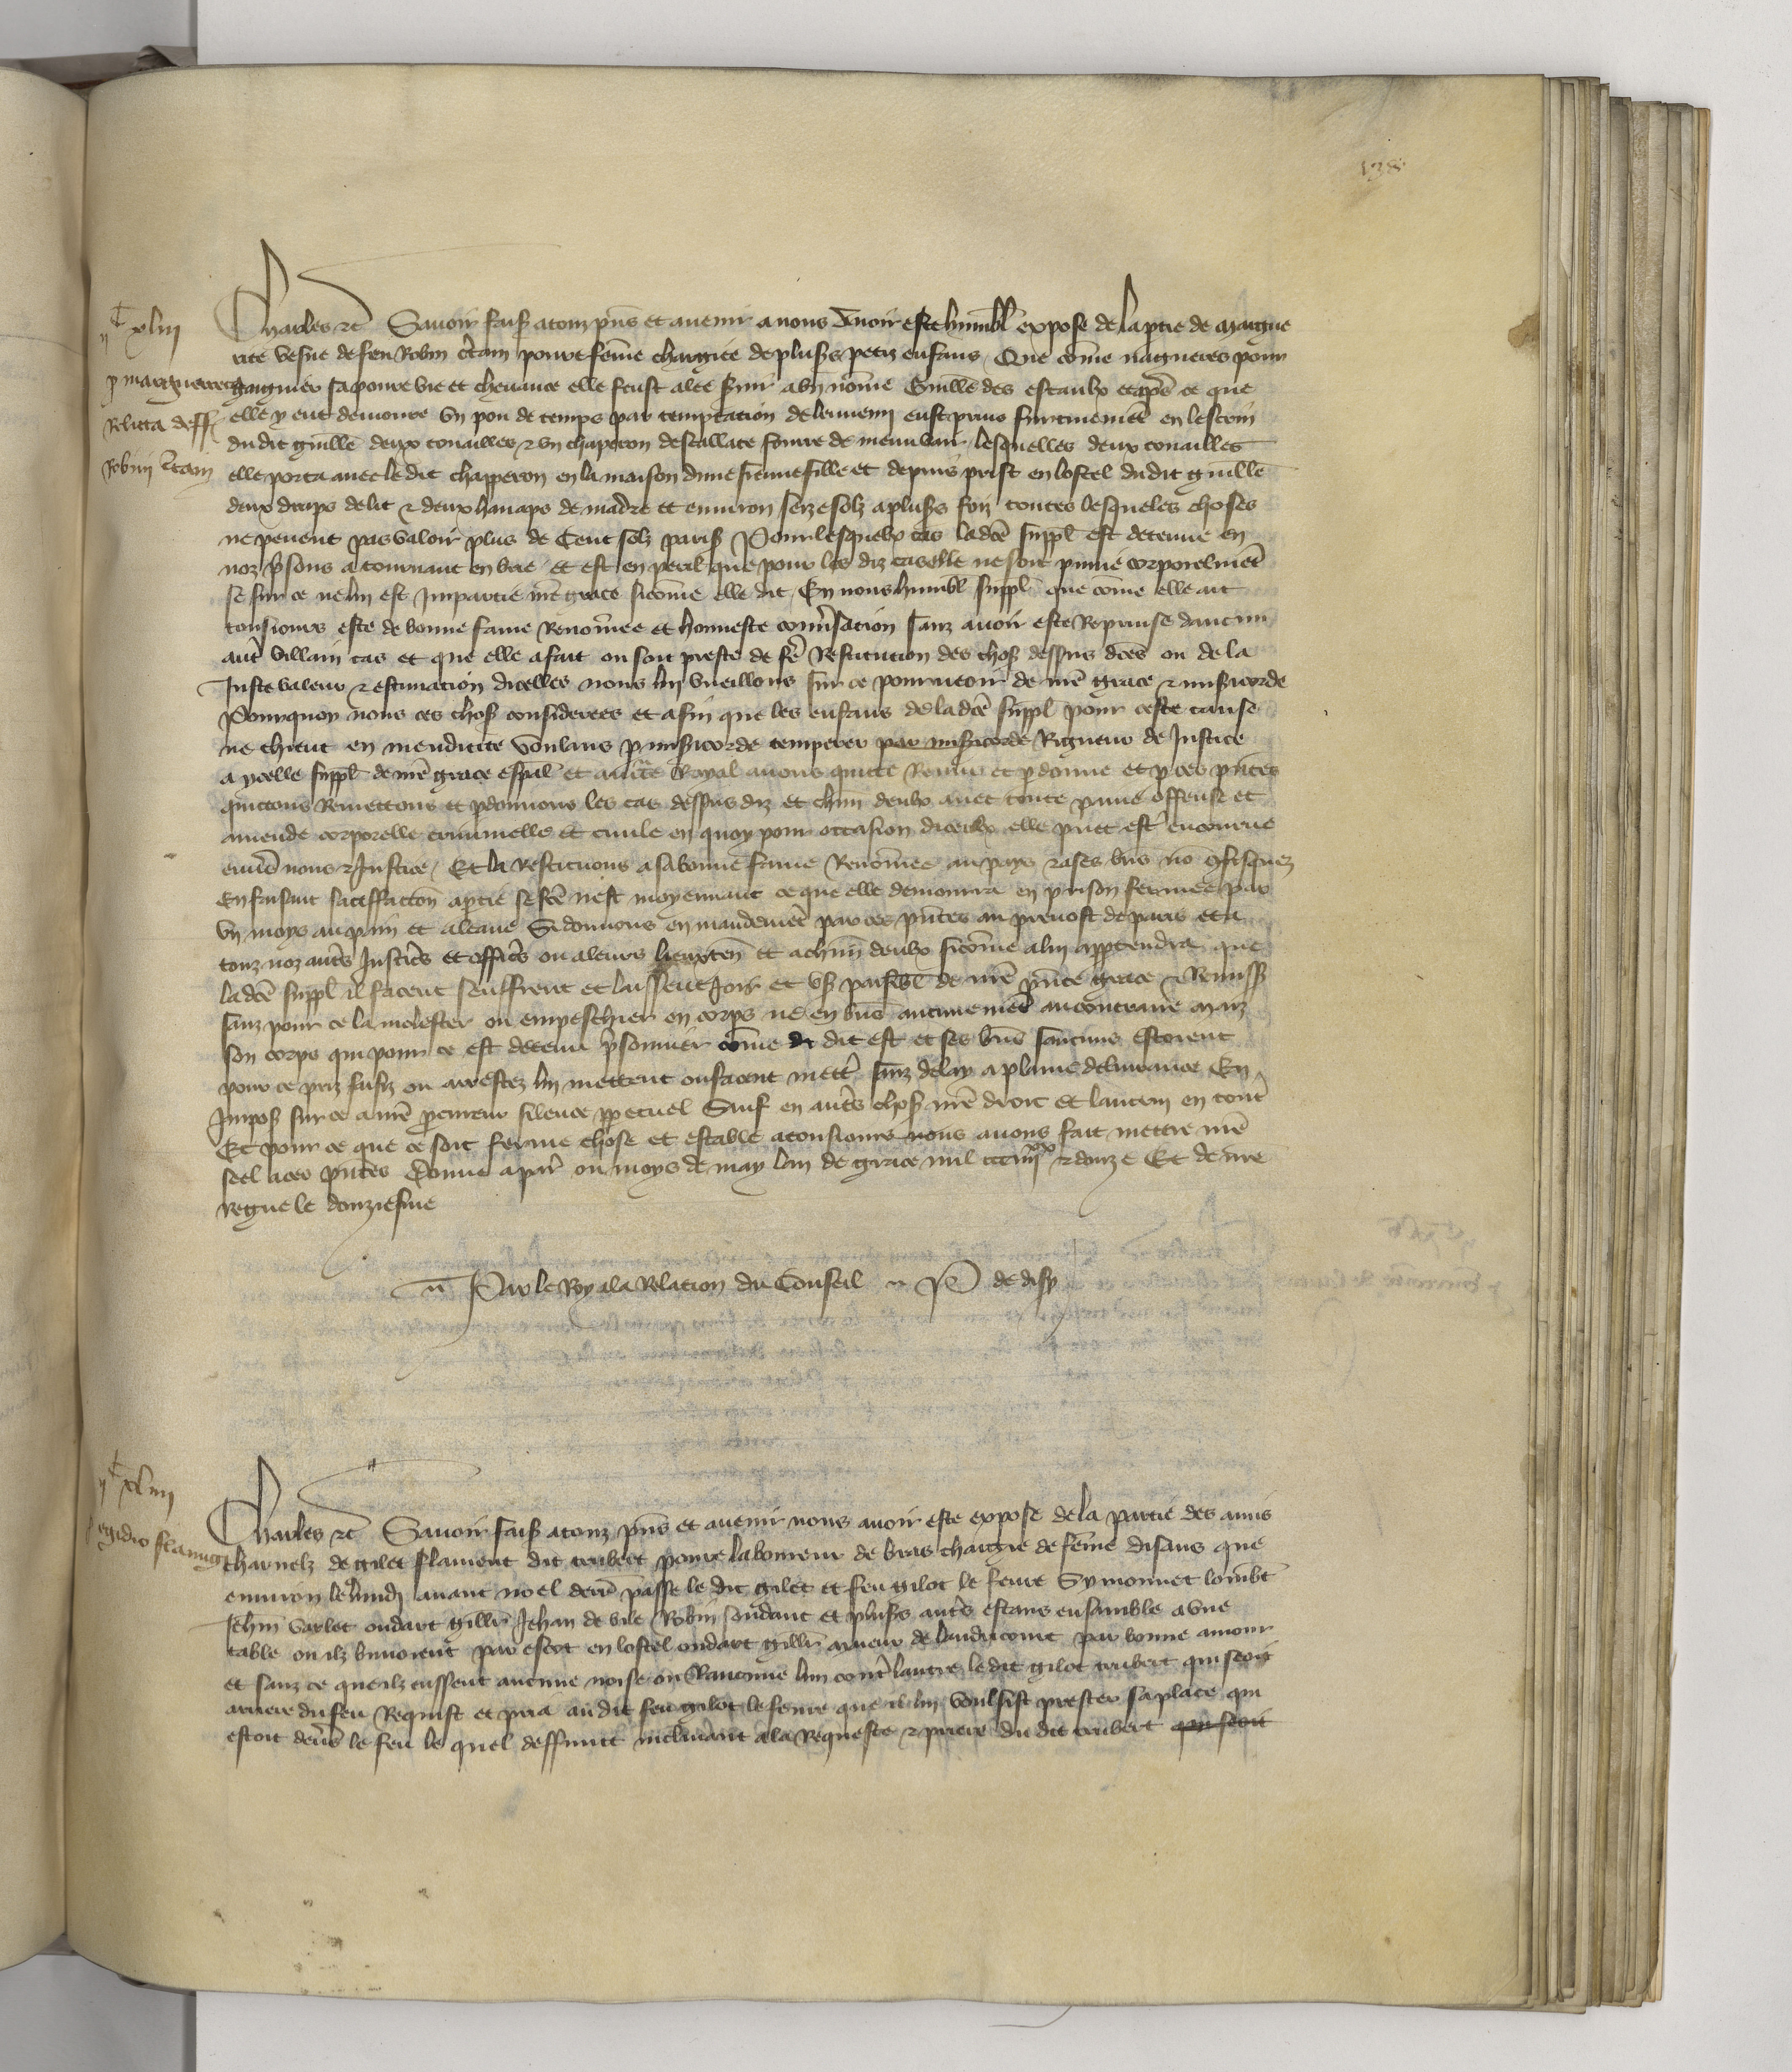 138
IIc XLIII
p marguereta
Relicta deff
Robin c̃tain
Charles ⁊c Savoir faiss a touz p̃ns et avenir a nous Avoir este humbl̃ expose de la p̃tie de Margue
rite vesve de feu Robin c̃tain povre fem̃e chargiee de pluss̃ petiz enfans Que com̃e nagueres pour
gaignier sa povre vie et chevance elle feust alee s̃vir a un nom̃e Guill̃e des estaulx et ap̃s ce que
elle y eut demoure un pou de temps par temptacion de lennemi eust prins furtivem̃t en lescrin
du dit guill̃e deux touailles ⁊ un chaperon descallate fourre de menuvair lesquelles deux touailles
elle porta avec le dit chapperon en la maison dune sienne fille et depuis prist en lostel dudit guill̃e
deux draps de lit ⁊ deux hanaps de madre et environ seze solz a pluss̃ foiz toutes lesqueles choses
ne pevent pas valoir plus de Cent solz paris̃ Pour lesquelx cas lad̃ce suppl̃ est detenue en
noz p̃sons a tournant en brie et est en peril que pour les diz cas elle ne soit punie corporelm̃et
se sur ce ne lui est Impartie ñre grace si com̃e elle dit En nous humbl̃ suppl̃ que com̃e elle ait
tousjours este de bonne fame Renom̃ee et honneste conṽsacion sanz avoir este Reprinse daucun
aut̃ villain cas et que elle a fait ou soit preste de f̃e Restitucion des chos̃ dessus d̃ces ou de la
Juste valeur ⁊ estimacion dicelles nous lui vueillons sur ce pourveoir de ñre grace ⁊ mis̃icorde
Pourquoy nous ces chos̃ considerees et afin que les enfans de lad̃ce suppl̃ pour ceste cause
ne chieent en mendicite voulans p̲ mis̃icorde temperer par misericorde Rigueur de Justice
a ycelle suppl̃ de ñre grace esp̃al et auct̃e Royal avons quicte Remis et p̲donne et p̲ ces p̃ntes
quictons Remettons et p̲donnons les cas dessus diz et ch̃un deulx avec toute peine offense et
amende corporelle criminelle et civile en quoy pour occasion diceulx elle puet est̃ encourue
env̑s nous ⁊ Justice Et la Restituons a sa bonne fame Renom̃ee au pays ⁊ a ses biẽs nõ 9fisquez
En faisant satisfaction a p̲tie se f̃ce nest moyennant ce que elle demourra en prison fermee par
un moys au pain et a leaue Si donnons en mandem̃et par ces p̃ntes au prevost de paris et a
touz noz aut̃s Justic̃s et offic̃s ou a leurs lieuxten̄ et a ch̃un deulx si com̃e a lui app̲tendra que
lad̃ce suppl̃ il facent seuffrent et laissent Joir et us̃ paisibl̃ de ñre p̃nte grace ⁊ Remiss̃
sanz pour ce la molester ou empeschier en corps ne en biẽs aucunem̃et au contraire Maiz
son corps qui pour ce est detenu p̃sonnier com̃e dit est et ses biẽs saucuns estoient
pour ce priz saisiz ou arrestez lui mettent ou facent mett̃ sanz delay a plaine delivrance En
Impos̃ sur ce a ñre p̲cureur silence p̲petuel Sauf en aut̃s chos̃ ñre droit et lautrui en tout̃
Et pour ce que ce soit ferme chose et estable a tousjours nous avons fait mettre ñre
seel a ces p̃ntes Donne a par̃ ou moys de may lan de grace mil ccc iiijxx ⁊ douze Et de ñre
regne le douziesme
Par le Roy a la Relation du Conseil P de disy
IIc XLIIII
p egidio flamingi
Charles ⁊c Savoir faiss a touz p̃ns et avenir nous avoir este expose de la partie des amis
charnelz de gilet flament dit trubert povre laboureur de bras chargie de fem̃e disans que
environ le lundi avant noel derr̃ passe le dit gilet et feu gilot le fevre Symonnet lombt̃
Jeh̃an varlet oudart gillet̃ Jehan de vile Robin soudant et pluss̃ aut̃s estans ensamble a une
table ou ilz buvoient par escot en lostel oudart gillet̃ a par bonne amour
et sanz ce que ilz eussent aucune noise ou Rancune lun cont̃ lautre le dit gilot trubert qui seoit
arriere du feu Requist et pria au dit feu gilot le fevre que il lui voulsist prester sa place qui
estoit dev̑s le feu le quel deffunct inclinant a la Requeste ⁊ priere du dit trubert qui seoit